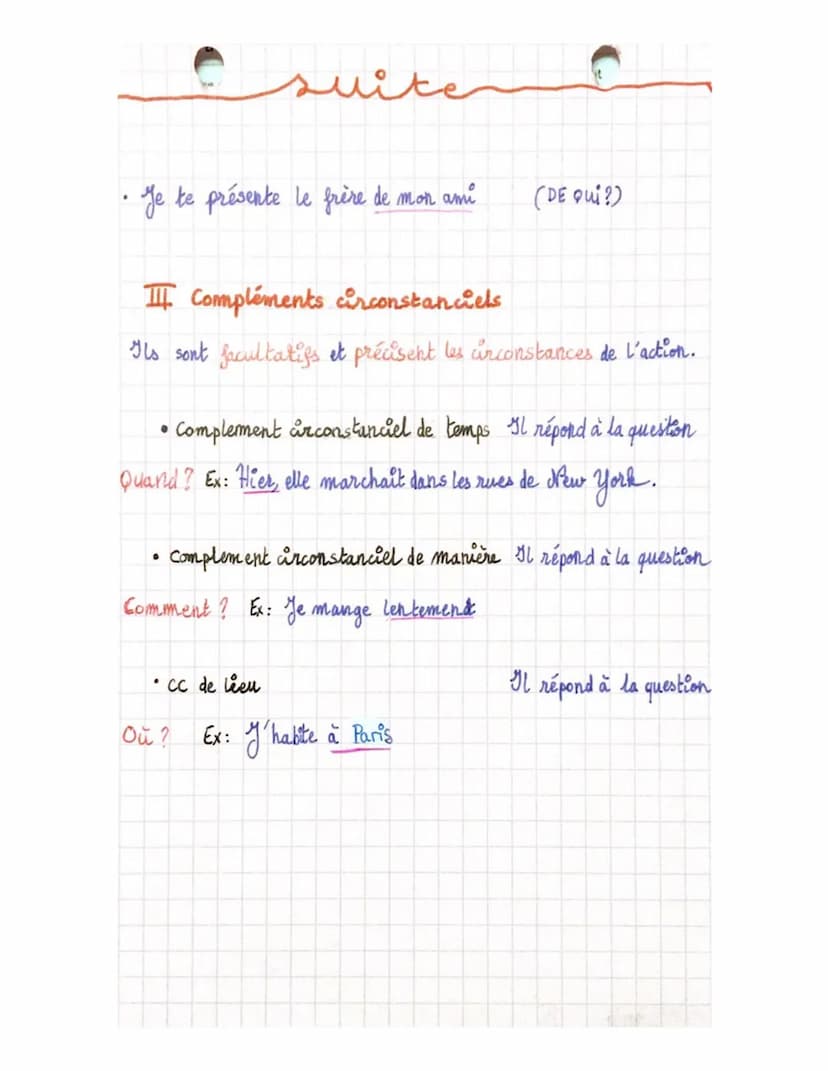 suite
• Je te présente le frère de mon ami (DE QUI?)
III. Compléments circonstanciels
Ils sont facultatifs et précisent les circonstances de l'action.
• Complement circonstanciel de temps Il répond à la question
Quand? Ex: Hier, elle marchait dans les rues de New York.
• Complement circonstanciel de manière Il répond à la question
Comment? Ex: Je mange lentement
• CC de lieu Il répond à la question
Où? Ex: J'habite à Paris